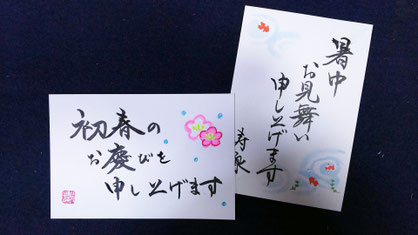 初春の
お慶びを
申し上げます
暑中
お見舞い
申し上げます